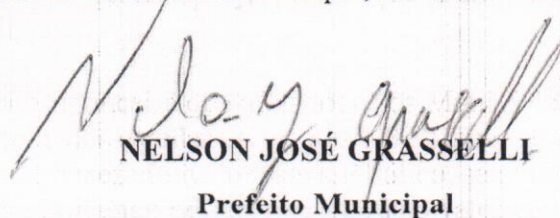 NELSON JOSÉ GRASSELLI
Prefeito Municipal